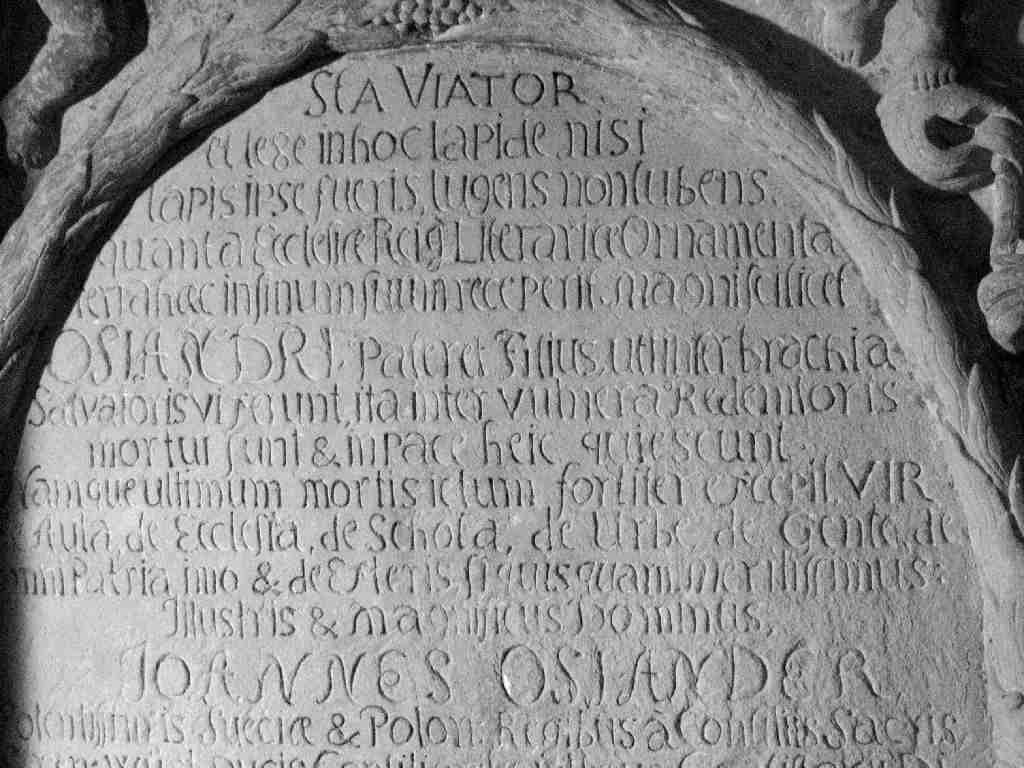 StA VIATOR.
et lege in hoc lapide nisi
lapis ipse fueris, lugens non lubens.
quanta Ecclesiæ Reig Literariæ Ornamenta
hæc insinum suum receperit. magni scilicet
OSIANDRI. Pater et Filius, uti inter brachia
Salvatoris vixerunt, ita inter Vulnera Redemtoris
mortui sunt & in pace heic quiescunt.
amque ultimum mortis ictum fortiter excepit. VIR
Aula, de Ecclesia, de Schola, de Urbe de Gente, de
Patria imo & de Exteris, siquisquam, meritissimus:
Illustris & magnificus Dominus,
JOANNES OSIANDER
Sueciæ & Polon: Regibus a Consiliis Sacris,